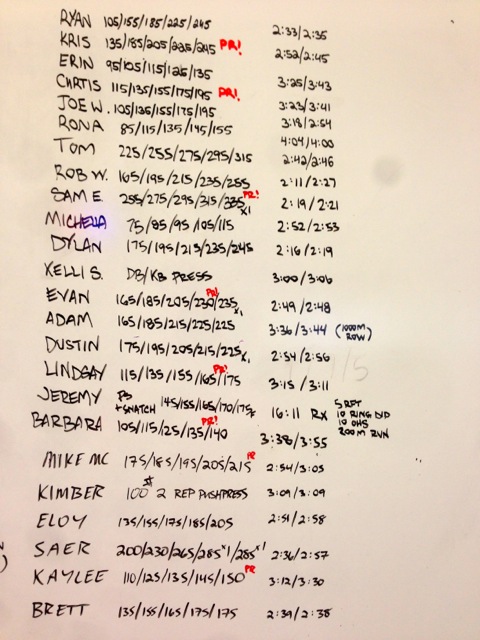 RYAN 105/155/185/225/245 2:33/2:35
KRIS 135/185/205/225/245 PR! 2:52/2:45
ERIN 95/105/115/125/135
CHRTIS 115/135/155/175/195 PR! 3:25/3:43
JOE W. 105/135/155/175/195 3:23/3:41
RONA 85/115/135/145/155 3:18/2:54
TOM 225/255/275/295/315 4:04/4:00
2:42/2:46
ROB W. 165/195/215/235/255 2:11/2:27
SAM E. 255/275/295/315/335x1 PR! 2:19/2:21
MICHELLA 75/85/95/105/115 2:52/2:53
DYLAN 175/195/215/235/245 2:16/2:19
KELLI S. DB/KB PRESS 3:00/3:06
EVAN 165/185/205/230/235x1 PR! 2:49/2:48
ADAM 165/185/215/225/225 3:36/3:44 (1000M ROW)
DUSTIN 175/195/205/215/225x1 2:54/2:56
LINDSAY 115/135/155/165/175 PR! 3:15/3:11
JEREMY PB + SNATCH 145/155/165/170/175x 16:11 Rx 5 RFT
10 RING DIP
10 OHS
200M RUN
BARBARA 105/115/25/135/140 PR! 3:38/3:55
MIKE MC 175/185/195/205/215 PR 2:54/3:05
KIMBER 100# 2 REP PUSHPRESS 3:09/3:09
ELOY 135/155/175/185/205 2:51/2:58
SAER 200/230/265/285x1/285x1 2:36/2:57
KAYLEE 110/125/135/145/150 PR 3:12/3:30
BRETT 135/155/165/175/175 2:39/2:38